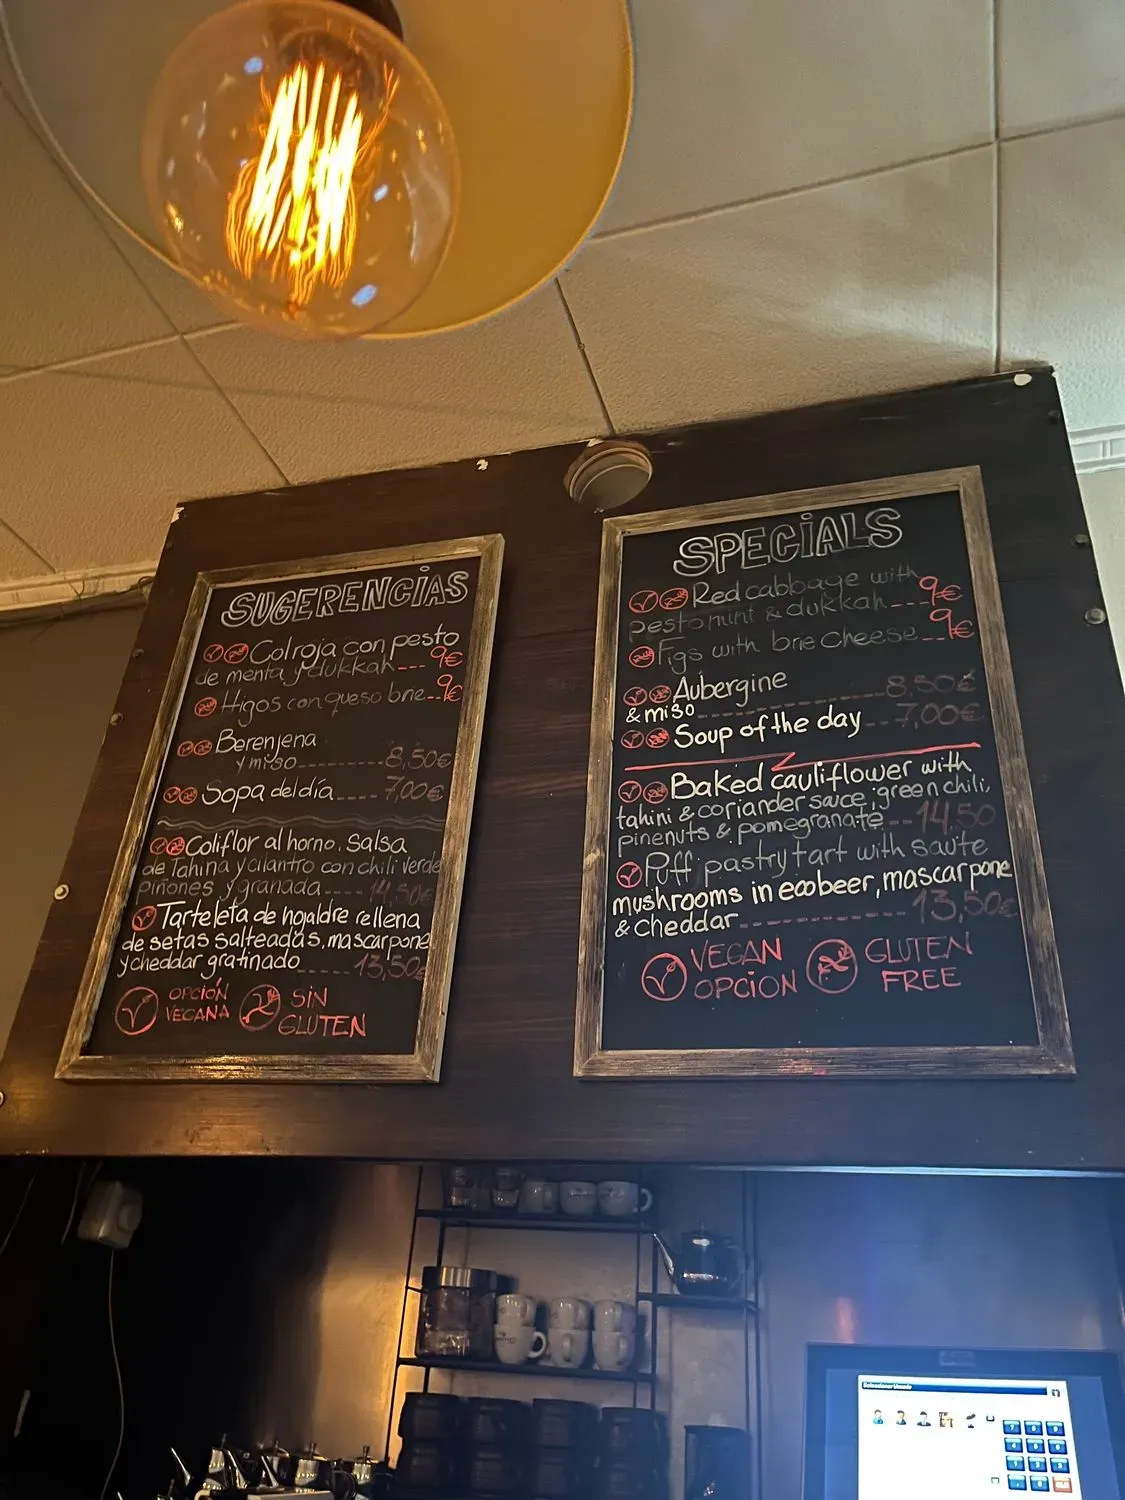 SUGERENCIAS
Col roja con pesto
de menta y dukkah---9€
Higos con queso brie--9€
Berenjena
y miso---------8,50€
Sopa del día----7,00€
Coliflor al horno. Salsa
de Tahina y cilantro con chili verde
piñones y granada----14,50€
Tarteleta de hojaldre rellena
de setas salteadas, mascarpone
y cheddar gratinado-----13,50€
OPCIÓN
VEGANA
SIN
GLUTEN
SPECIALS
Red cabbage with
pesto mint & dukkah---9€
Figs with brie cheese--9€
Aubergine
& miso-------------8,50€
Soup of the day--7,00€
Baked cauliflower with
tahini & coriander sauce, green chili,
pinenuts & pomegranate--14,50
Puff pastry tart with sauté
mushrooms in eco beer, mascarpone
& cheddar-----------13,50€
VEGAN
OPCION
GLUTEN
FREE